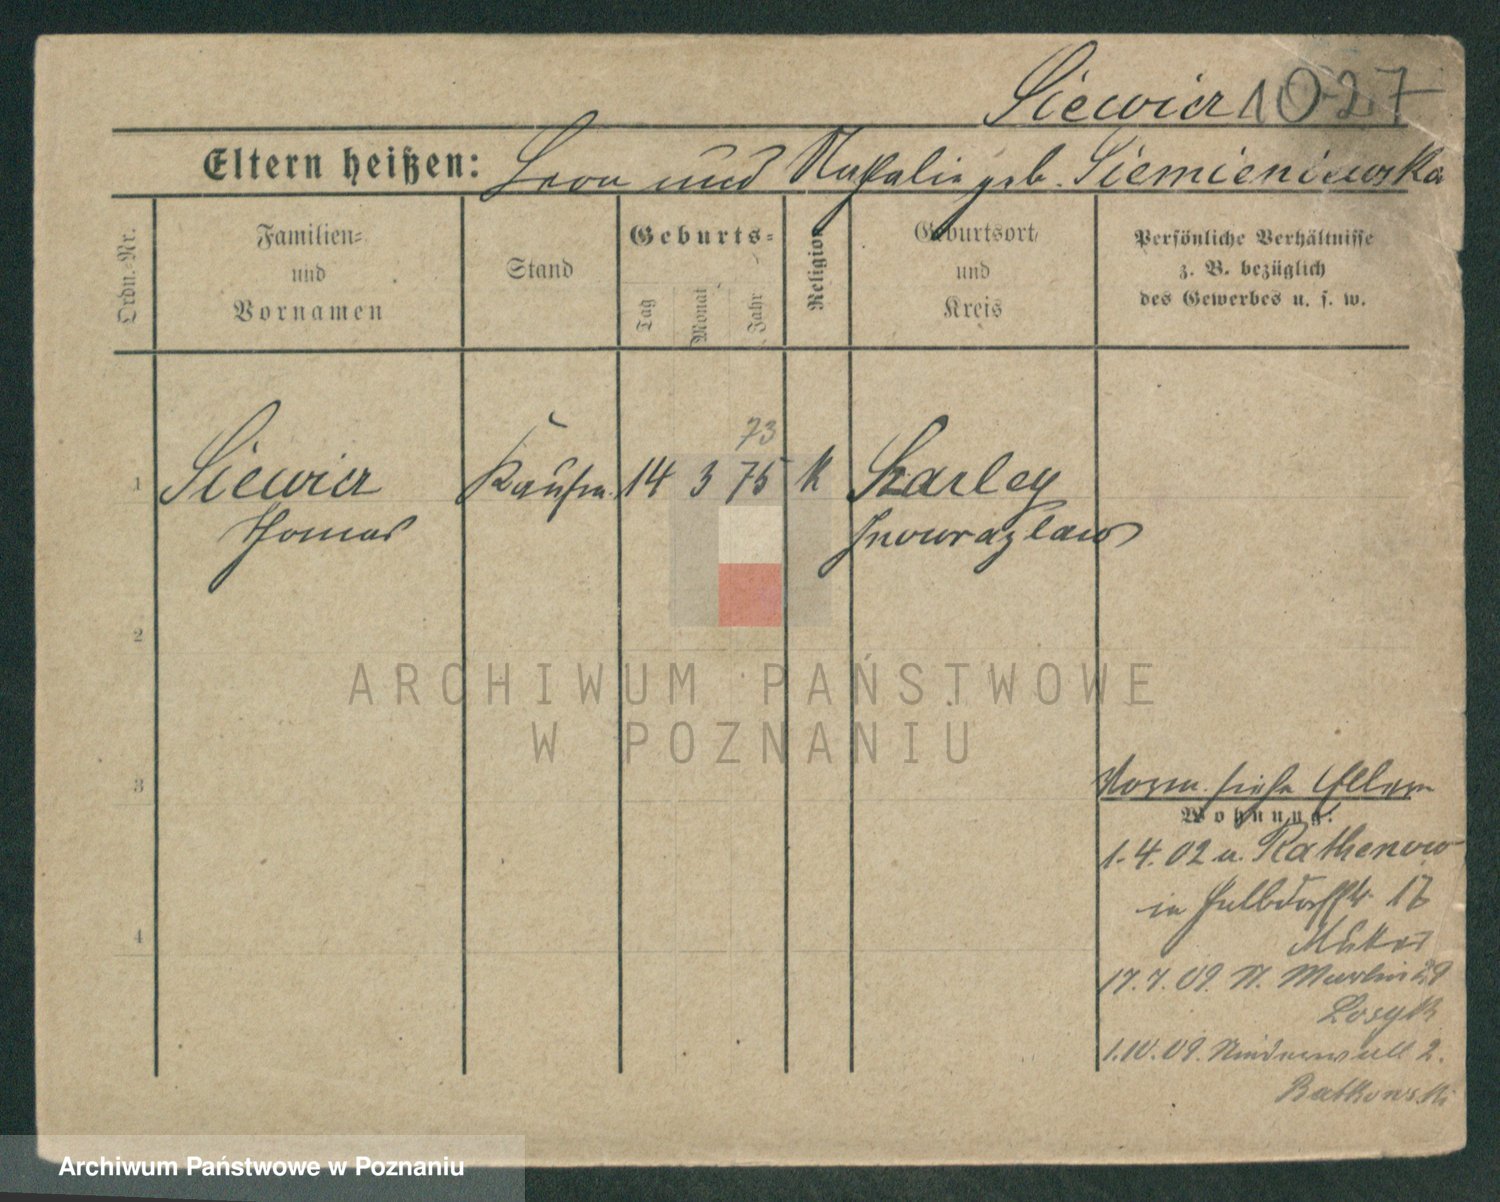 Siewicz 1027
Eltern heißen: Leon und Nathalie geb. Siemieniewska
Ordn.-Nr.
Familien-
und
Vornamen
Stand
Geburts-
Tag
Monat
Jahr
Religion
Geburtsort
und
Kreis
Persönliche Verhältnisse
z. B. bezüglich
des Gewerbes u. s. w.
73
1 Siewicz Kaufm. 14 3 75 k Szarley
Thomas Inowrazlaw
2
ARCHIWUM PAŃSTWOWE
W POZNANIU
3
Vorm. siehe Eltern
Wohnung:
1.4.02 n. Rathenow
in 17
4
17.7.09. St. Martin 29
Losyk
1.10.09. Niederwall 2.
Batkowski
Archiwum Państwowe w Poznaniu